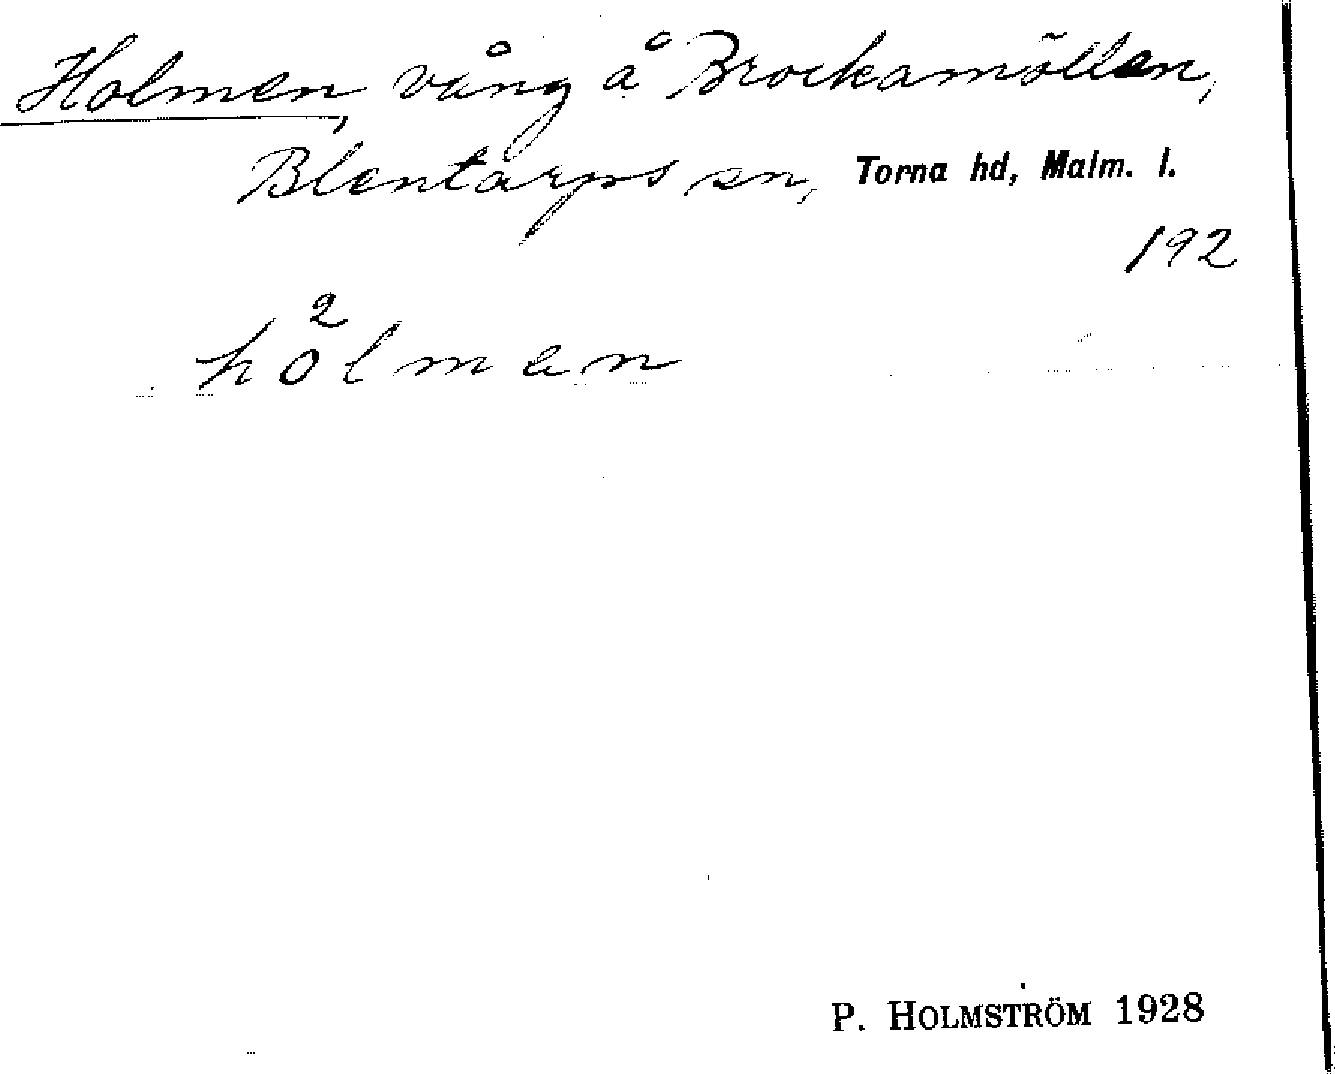 Holmen, vång å Brockamöllen,
Blentarps sn, Torna hd, Malm. l.
192
2
hölmen
P. HOLMSTRÖM 1928